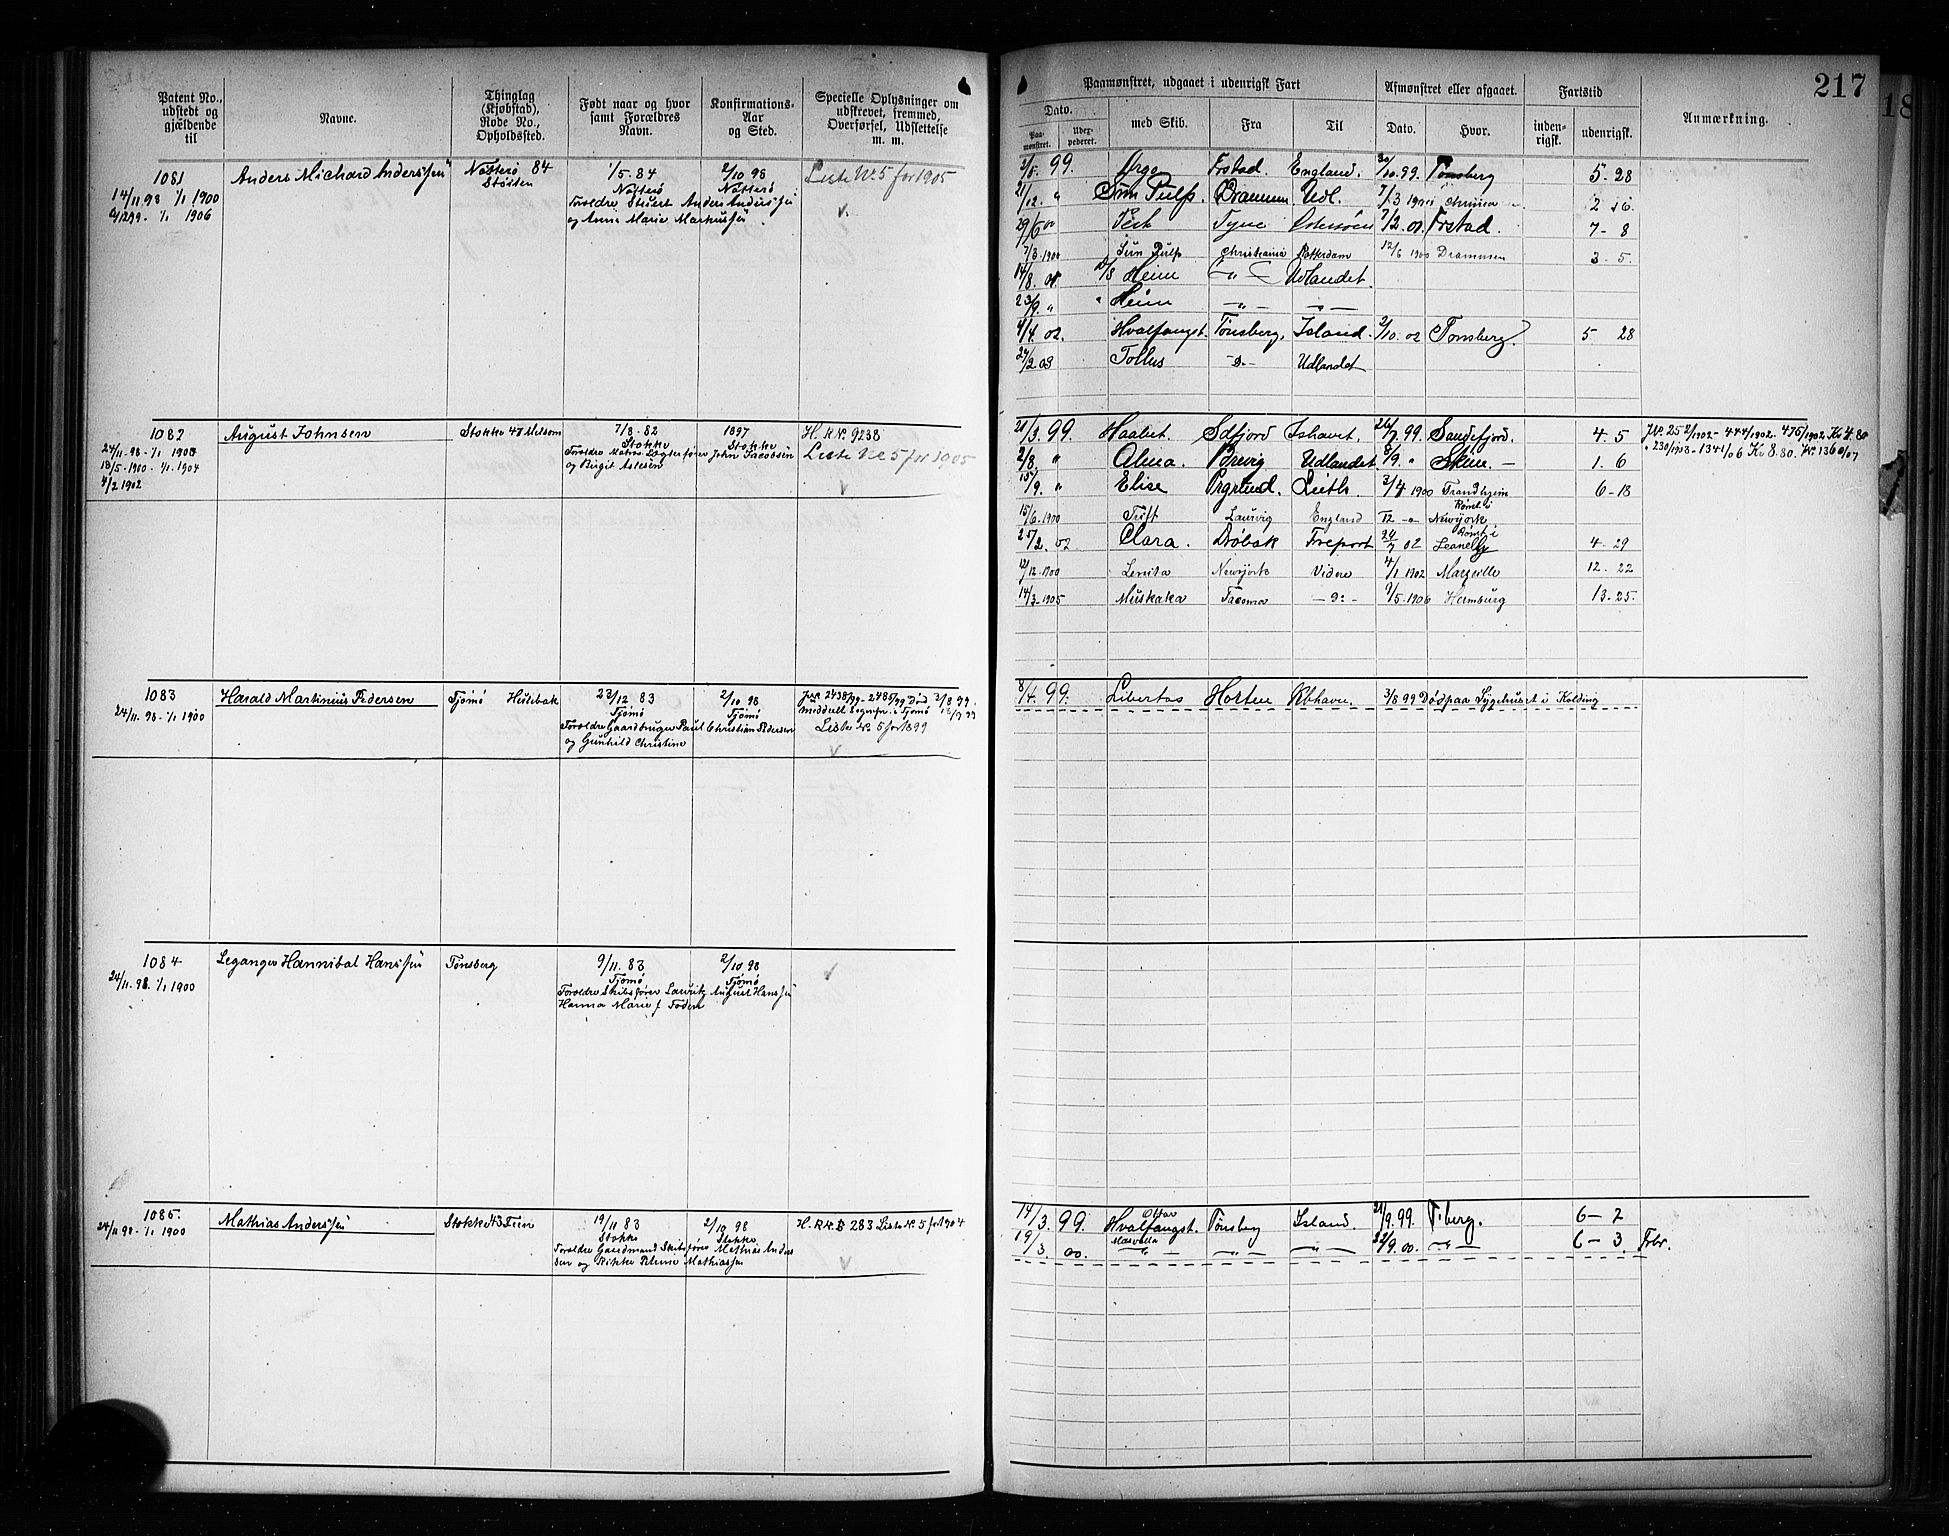 217
18
Patent No., udstedt og gjældende til
Navne.
Thinglag (Kjøbstad), Rode No., Opholdssted.
Født naar og hvor samt Forældres Navn.
Konfirmations-Aar og Sted.
Specielle Oplysninger om udskrevet, fremmed, Overførsel, Udslettelse m. m.
Paamønstret, udgaaet i udenrigsk Fart
Afmønstret eller afgaaet.
Fartstid
Anmærkning.
Dato.
Paa-mønstret.
Udex-pederet.
med Skib.
Fra
Til
Dato.
Hvor.
inden-rigsk.
udenrigsk.
1081
14/11 98 1/1 1900
1/1 1906
Anders Michard Anderssen
Nøtterø 84
1/5. 84
Nøtterø
Forældre Skibst Anders Anderssen
og Anne Marie Markussen
2/10 98
Nøtterø
Liste No 5 for 1905
2/5. 99. Ørge Frstad. England. 30/10. 99. Tønsberg 5 - 28
21/12. " Sun Pulp. Drammen Udl. 7/3 1900 2 16.
29/6 00 Vest Tyne Østersøen 7/2. 01. Frstad. 7 - 8
7/3 1900 Sun Pulp Christiania Rotterdam 12/6 1900 Drammen 3 - 5.
14/8. 01 Heim — " — Udlandet.
23/9. " " Heim — " — — " —
4/4. 02. Hvalfangst. Tønsberg. Island. 2/10. 02 Tønsberg. 5 28
24/2 03 Tollus — D. — Udlandet
1082
24/11 - 98 - 1/1 1900
18/5 - 1900. - 1/1. 1904
4/2 1902
August Johnsen
Stokke 47 Melsom
7/8 - 82
Stokke
og Birgit Aslesen
1897
Stokke
John Jacobsen
H. R No. 9238
Liste No 5 for 1905
21/3. 99. Haabet. Sdfjord Ishavet. 26/7. 99. Sandefjord. 4. 5
2/8. " Alma. Brevig Udlandet 8/9. " Skien. — 1. 6
15/9. " Elise Prgrund. Leith. 3/4 1900 Trondhjem 6 - 18
15/6. 1900 Trift Laurvig England Newyork
Rømt i
25/2. 02 Clara. Drøbak Freport 24/7 02
Rømt i
4 - 29
12/12. 1900 Newyork Videre 4/1 1902 Marseille 12. 22
14/3. 1905 Muskoka Tacoma 9/5. 1906 Hamburg 13 - 25.
1083
24/11. 98 - 1/1 1900
Harald Martinius Pedersen
Tjømø Hulebak
23/12 83
Tjømø
Forældre Gaardbruger Paul Christian Pedersen
og Gunhild Christine
2/10. 98
Tjømø
Jnr 2438/99 - 2485/99 Død 3/8 99.
Liste No. 5 for 1899
8/4. 99. Libertas Horten Kbhavn. 3/8 99 Død paa Sygehuset i Kolding
1084
24/11. 98. 1/1 1900
Leganger Hannibal Hanssen
Tønsberg
9/11. 83
Tjømø
Forældre Skibsfører Lauritz August Hanssen
Hanna Marie f. Foden
2/10 98
Tjømø
1085.
24/11 98 - 1/1 1900
Mathias Anderssen
Stokke 43 Feen
19/11 83
Stokke
Forældre Gaardmand Skibsfører Mathias Anders
sen og Rikke Mathiassen
2/10 98
Stokke
H. R No. B 283 Liste No. 5 for 1904
14/3. 99. Hvalfangst. Tønsberg Island. 21/9. 99. T.berg. 6 - 2
19/3. 00. — " — — " — — " — 22/9. 00. — " — 6 - 3 Frbr.